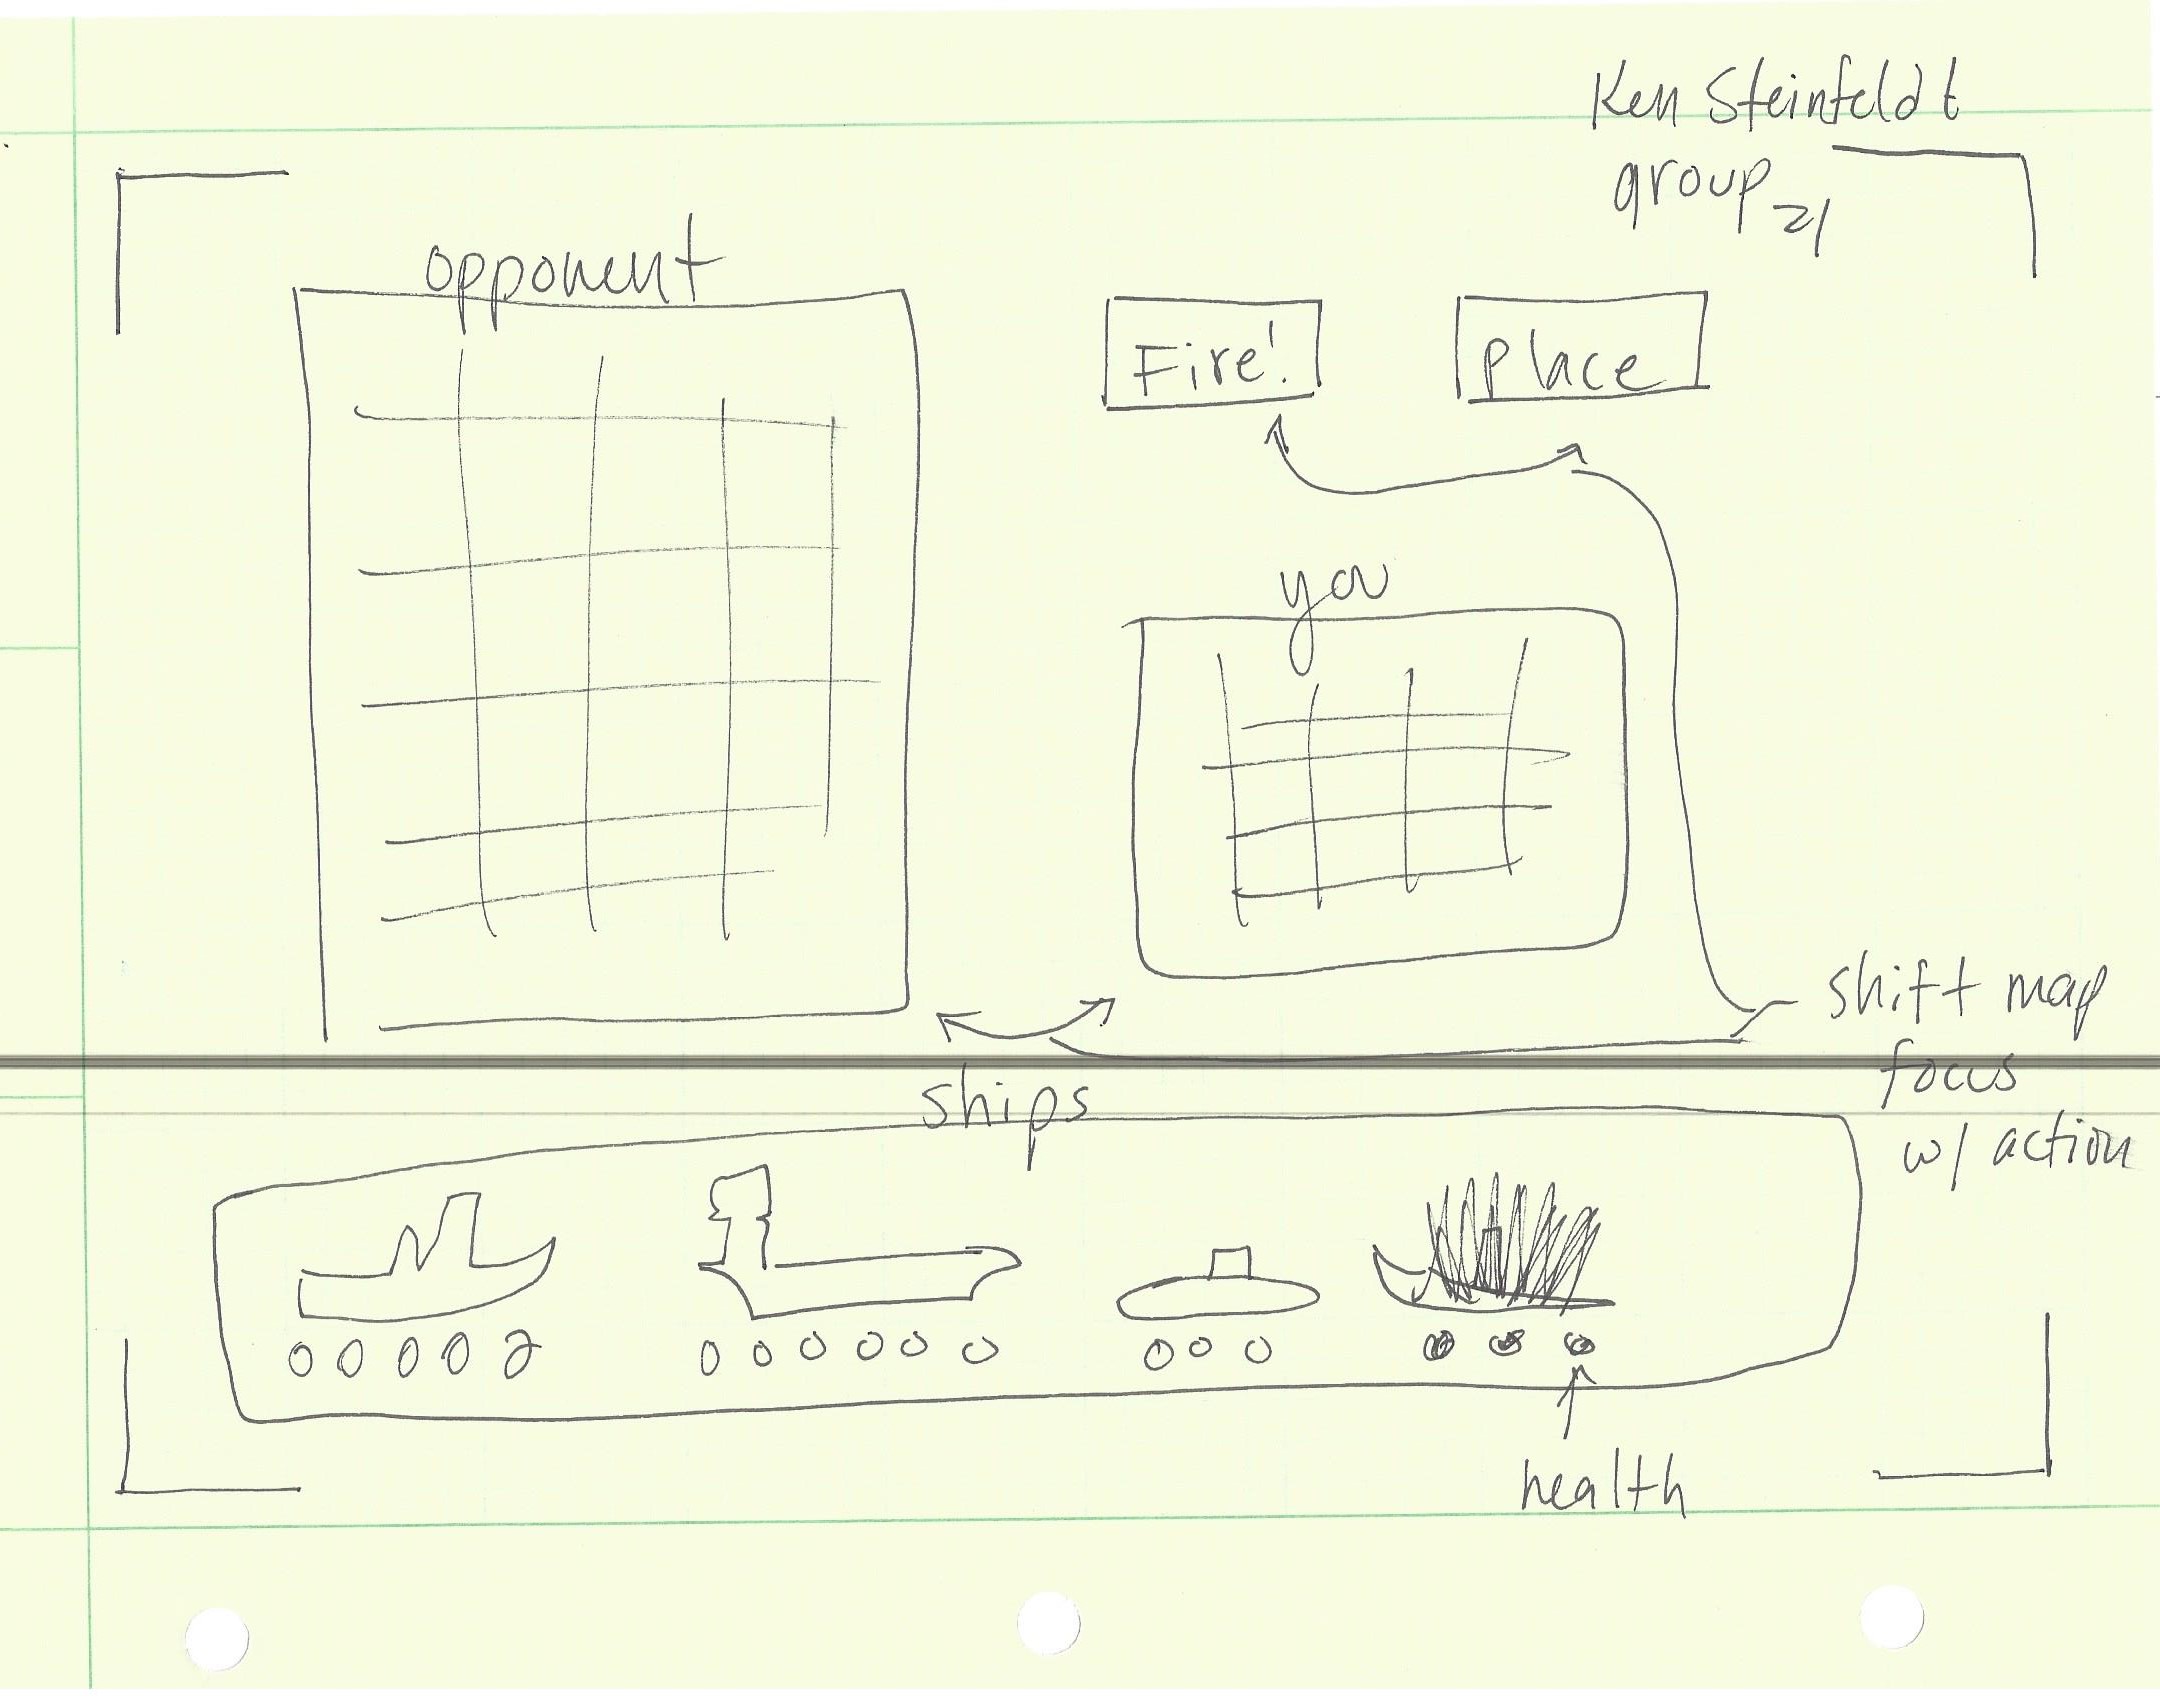 Ken Steinfeldt
group 21
opponent
Fire!
Place
you
shift map
focus
w/ action
ships
health